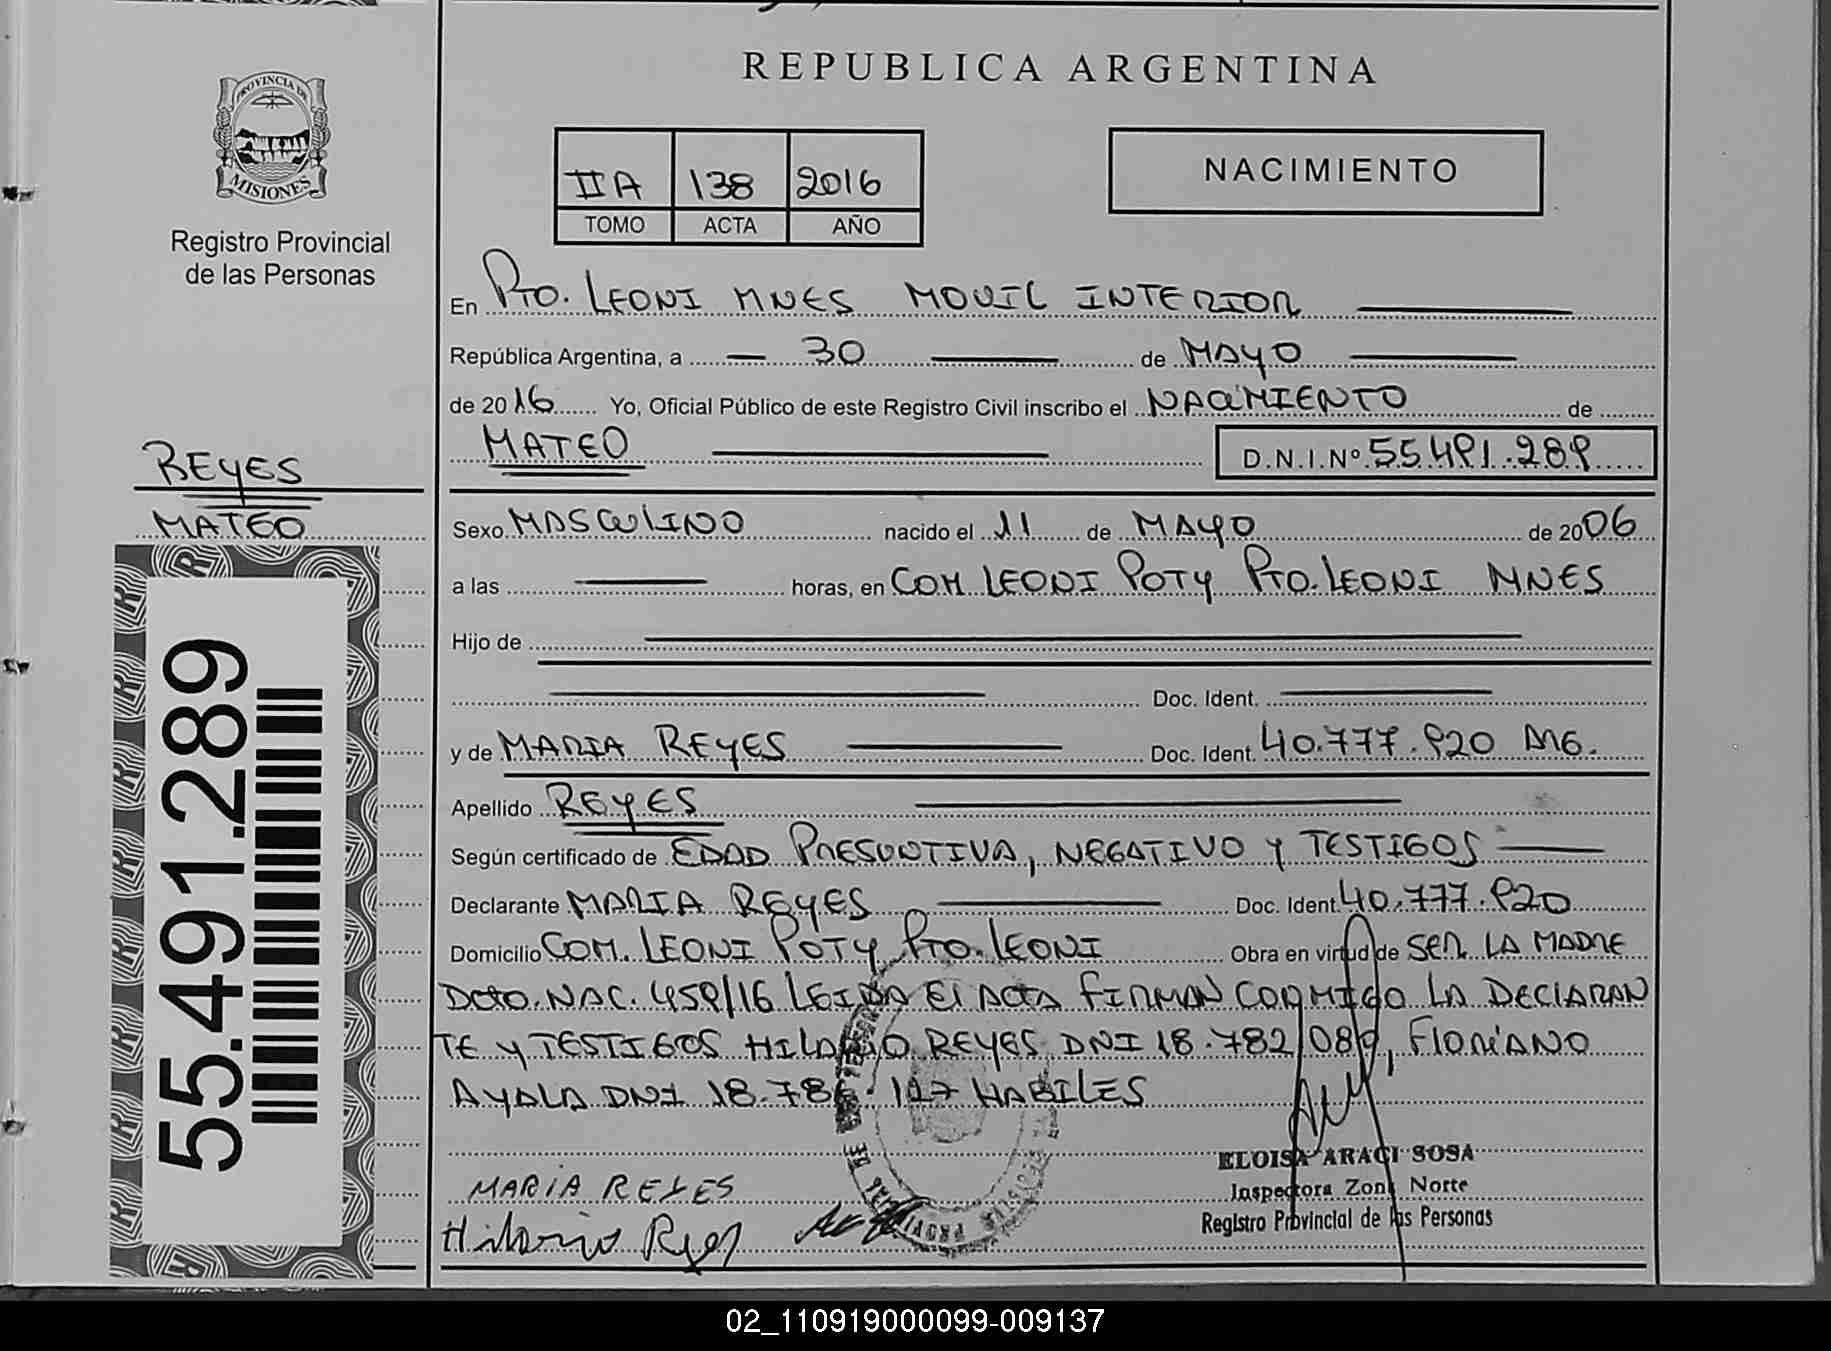 REPUBLICA ARGENTINA
PROVINCIA DE
MISIONES
Registro Provincial
de las Personas
IIA 138 2016
TOMO ACTA AÑO
NACIMIENTO
En Pto. LEONI MNES MOVIL INTERIOR
República Argentina, a 30 de MAYO
de 2016 Yo, Oficial Público de este Registro Civil inscribo el NACIMIENTO de
MATEO D.N.I.Nº 55.491.289
REYES
MATEO
55.491.289
Sexo MASCULINO nacido el 11 de MAYO de 2006
a las horas, en COM. LEONI POTY PTO. LEONI MNES
Hijo de
Doc. Ident.
y de MARIA REYES Doc. Ident. 40.777.920 MG.
Apellido REYES
Según certificado de EDAD PRESUNTIVA, NEGATIVO Y TESTIGOS
Declarante MARIA REYES Doc. Ident. 40.777.920
Domicilio COM. LEONI POTY PTO. LEONI Obra en virtud de SER LA MADRE
Dcto. NAC. 459/16 LEIDA El ACTA FIRMAN CONMIGO LA DECLARAN
TE Y TESTIGOS HILARIO REYES DNI 18.782.089, FlORIANO
AYALA DNI 18.786.117 HABILES
MARIA REYES
Hilario Reyes
ELOISA ARACI SOSA
Inspectora Zona Norte
Registro Provincial de las Personas
02_110919000099-009137